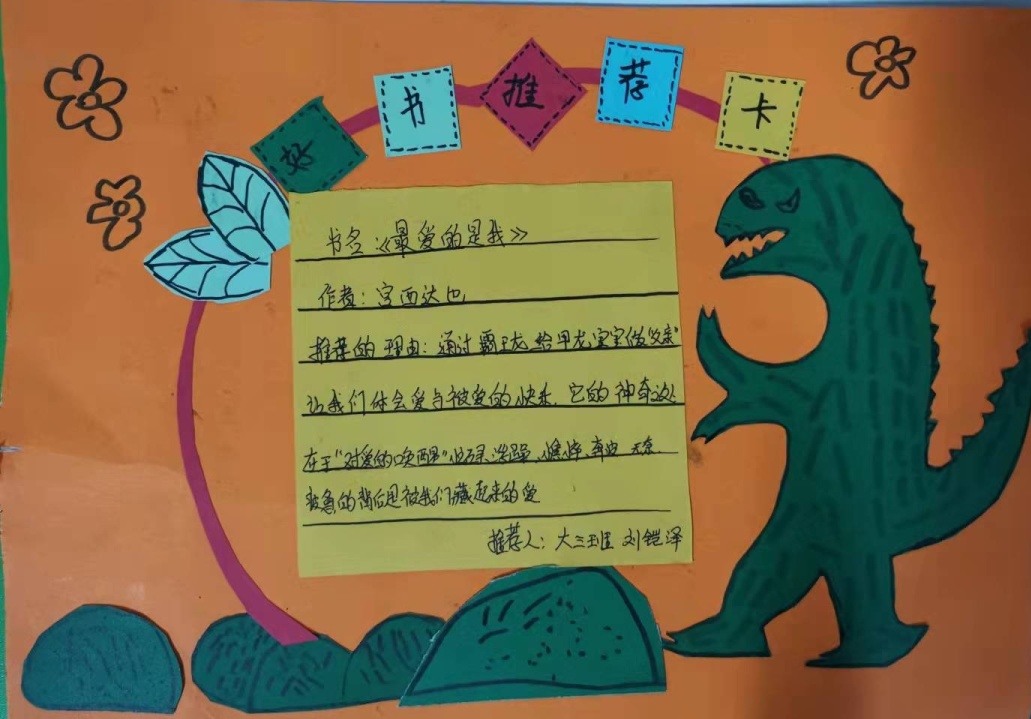 好书推荐卡
书名:《最爱的是我》
作者:宫西达也
推荐的理由:通过霸王龙给甲龙宝宝做“父亲”
让我们体会爱与被爱的快乐.它的神奇之处
在于“对爱的唤醒”忙碌、浮躁、憔悴、奔波、无奈、
着急的背后是被我们藏起来的爱
推荐人:大三班 刘铠泽